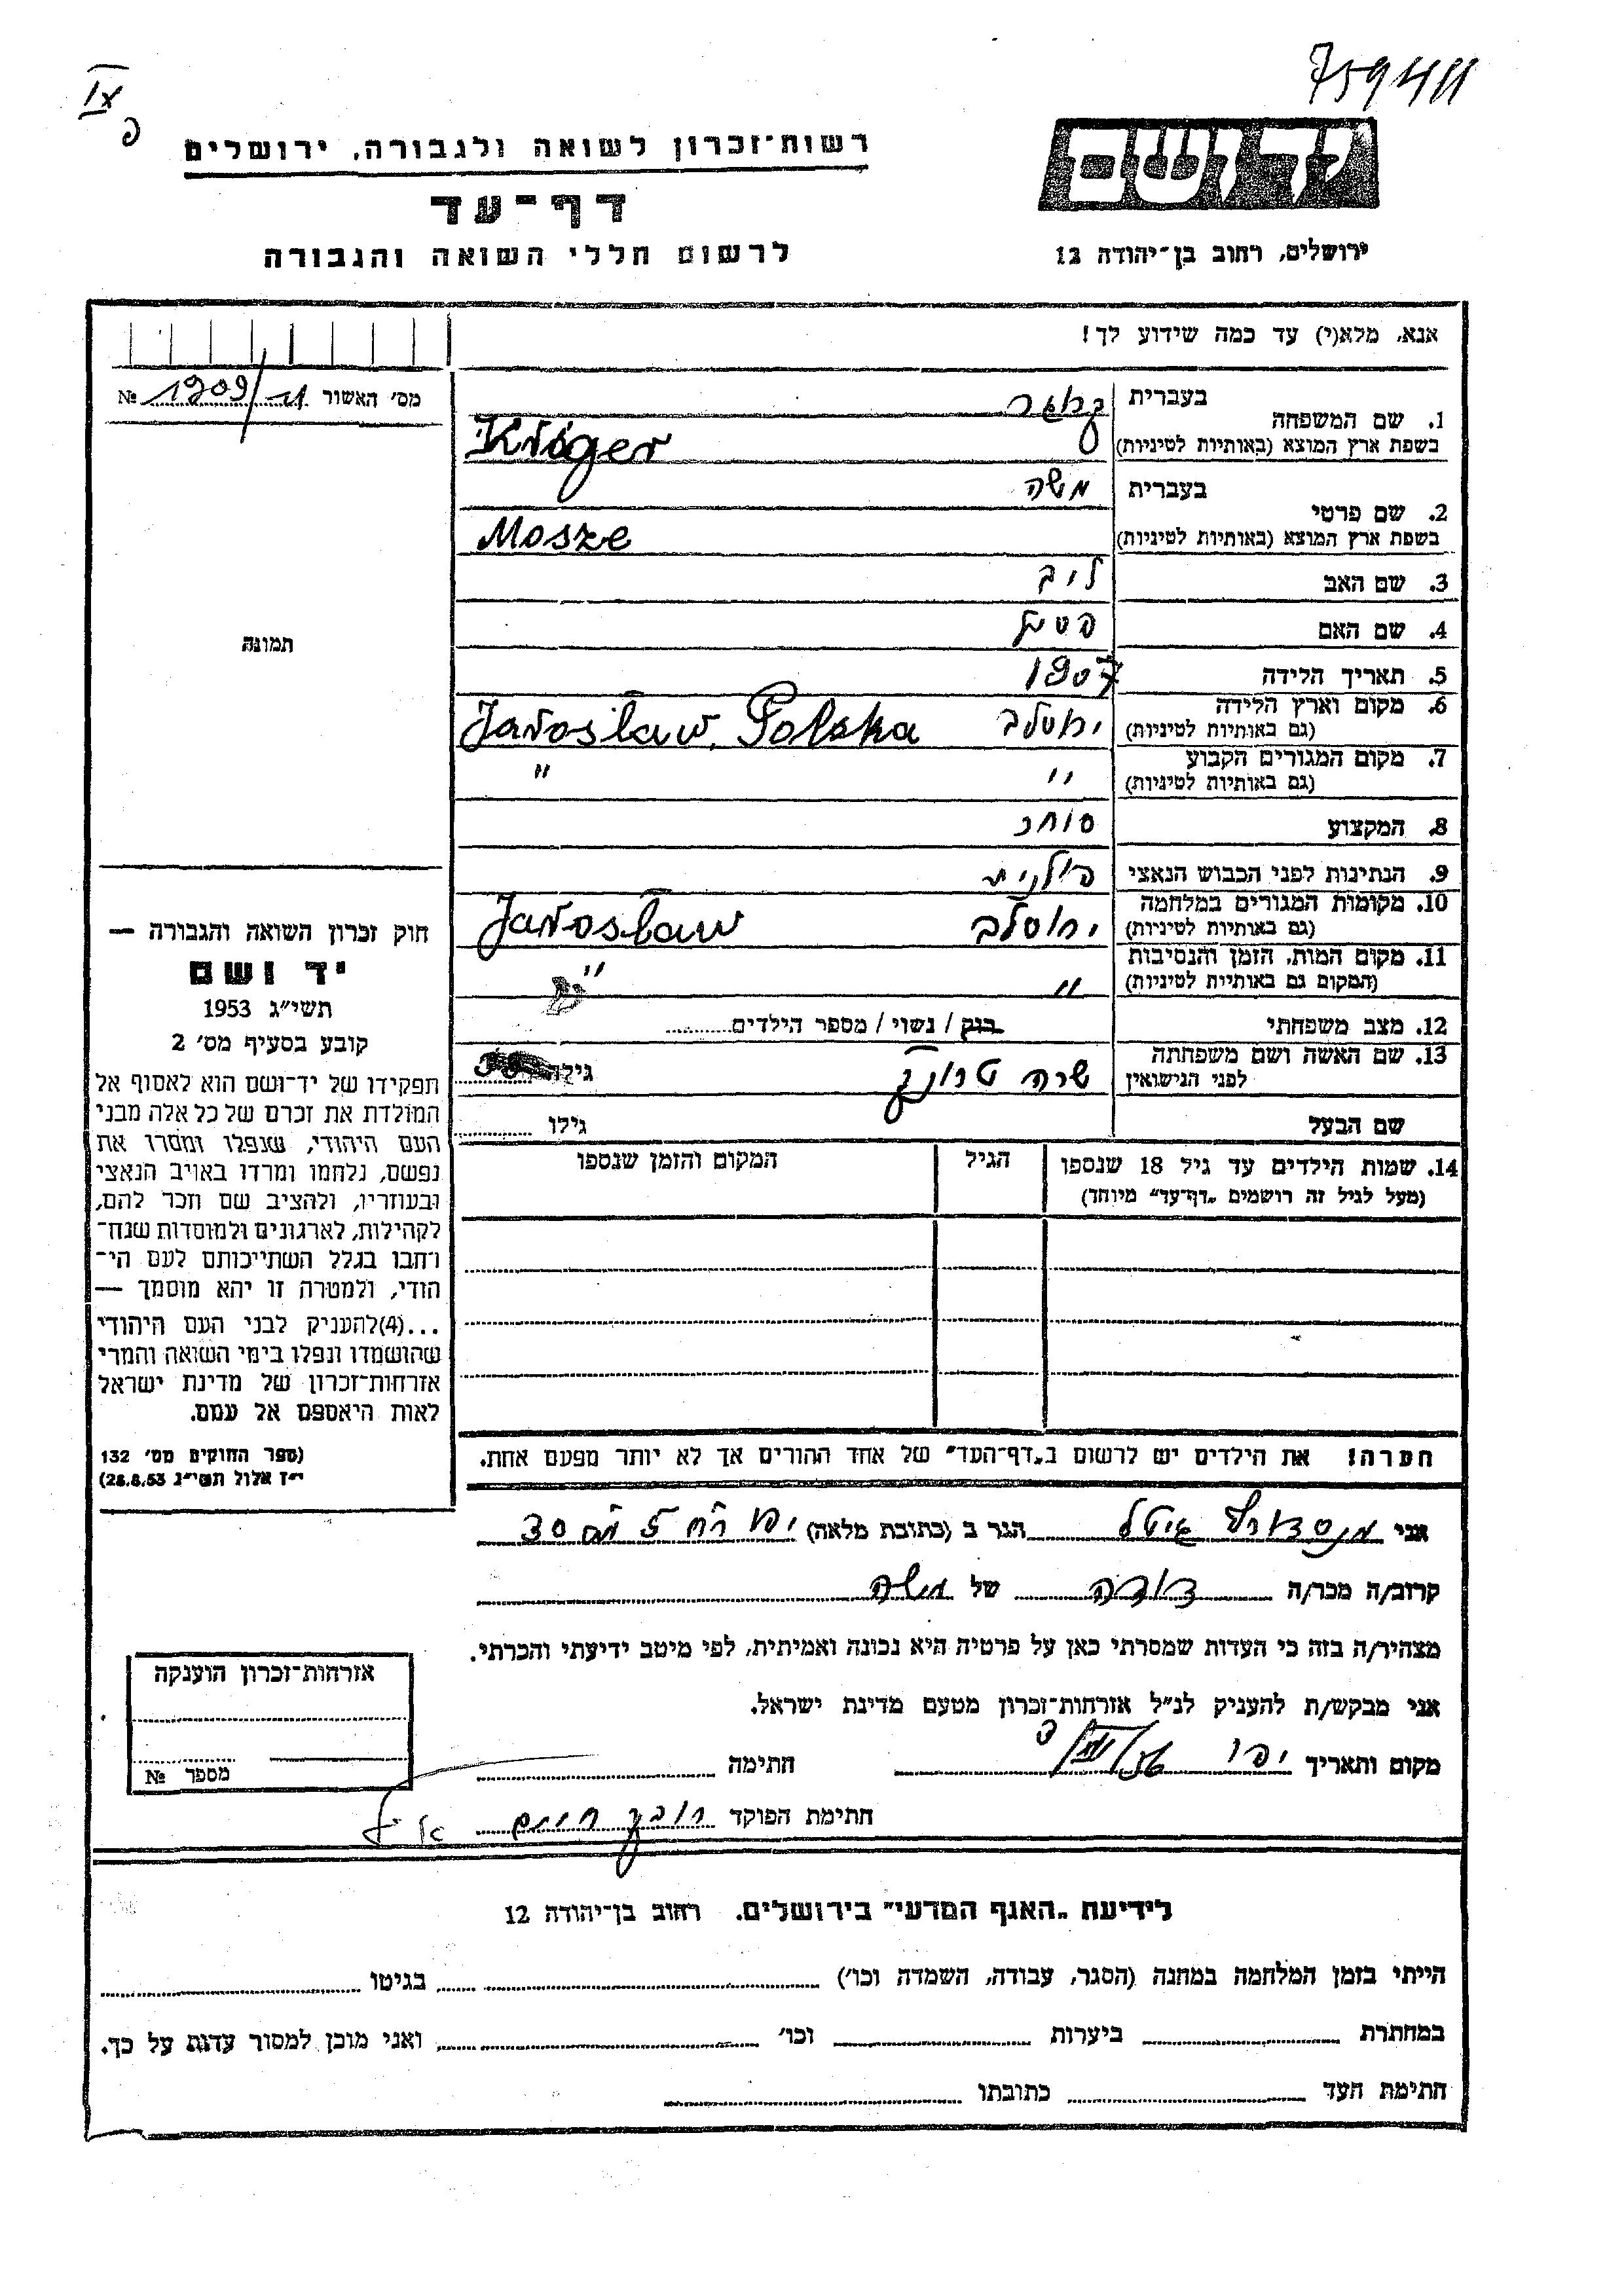 759411
IX
פ
רשות־זכרון לשואה ולגבורה, ירושלים
יד ושם
דף־עד
לרשום חללי השואה והגבורה
ירושלים, רחוב בן־יהודה 12
אנא, מלא(י) עד כמה שידוע לך!
מס׳ האשור 1909/ №
1. שם המשפחה בעברית קרוגר
בשפת ארץ המוצא (באותיות לטיניות) Kröger
2. שם פרטי בעברית משה
בשפת ארץ המוצא (באותיות לטיניות) Mosze
3. שם האב ליב
4. שם האם
5. תאריך הלידה 1907
6. מקום וארץ הלידה (גם באותיות לטיניות) ירוסלב Jarosław, Polska
7. מקום המגורים הקבוע (גם באותיות לטיניות) " "
8. המקצוע סוחר
9. הנתינות לפני הכבוש הנאצי פולנית
10. מקומות המגורים במלחמה (גם באותיות לטיניות) ירוסלב Jarosław
11. מקום המות, הזמן והנסיבות (המקום גם באותיות לטיניות) " "
12. מצב משפחתי רווק / נשוי / מספר הילדים
13. שם האשה ושם משפחתה לפני הנישואין שרה גילה
שם הבעל גילו
14. שמות הילדים עד גיל 18 שנספו הגיל המקום והזמן שנספו
(מעל לגיל זה רושמים „דף־עד" מיוחד)
הערה! את הילדים יש לרשום ב„דף־העד" של אחד ההורים אך לא יותר מפעם אחת.
תמונה
חוק זכרון השואה והגבורה —
יד ושם
תשי״ג 1953
קובע בסעיף מס׳ 2
תפקידו של יד־ושם הוא לאסוף אל
המולדת את זכרם של כל אלה מבני
העם היהודי, שנפלו ומסרו את
נפשם, נלחמו ומרדו באויב הנאצי
ובעוזריו, ולהציב שם וזכר להם,
לקהילות, לארגונים ולמוסדות שנח־
רבו בגלל השתייכותם לעם הי־
הודי, ולמטרה זו יהא מוסמך —
...(4)להעניק לבני העם היהודי
שהושמדו ונפלו בימי השואה והמרי
אזרחות־זכרון של מדינת ישראל
לאות היאספם אל עמם.
(ספר החוקים מס׳ 132
י״ז אלול תשי״ג 28.8.53)
אני הגר ב (כתובת מלאה) יפו רח 5 מס 30
קרוב/ה מכר/ה דודה של משה
מצהיר/ה בזה כי העדות שמסרתי כאן על פרטיה היא נכונה ואמיתית, לפי מיטב ידיעתי והכרתי.
אני מבקש/ת להעניק לנ״ל אזרחות־זכרון מטעם מדינת ישראל.
מקום ותאריך יפו חתימה
חתימת הפוקד
אזרחות־זכרון הוענקה
מספר №
לידיעת „האגף המדעי" בירושלים, רחוב בן־יהודה 12
הייתי בזמן המלחמה במחנה (הסגר, עבודה, השמדה וכו׳) בגיטו
במחתרת ביערות וכו׳ ואני מוכן למסור עדות על כך.
חתימת העד כתובתו